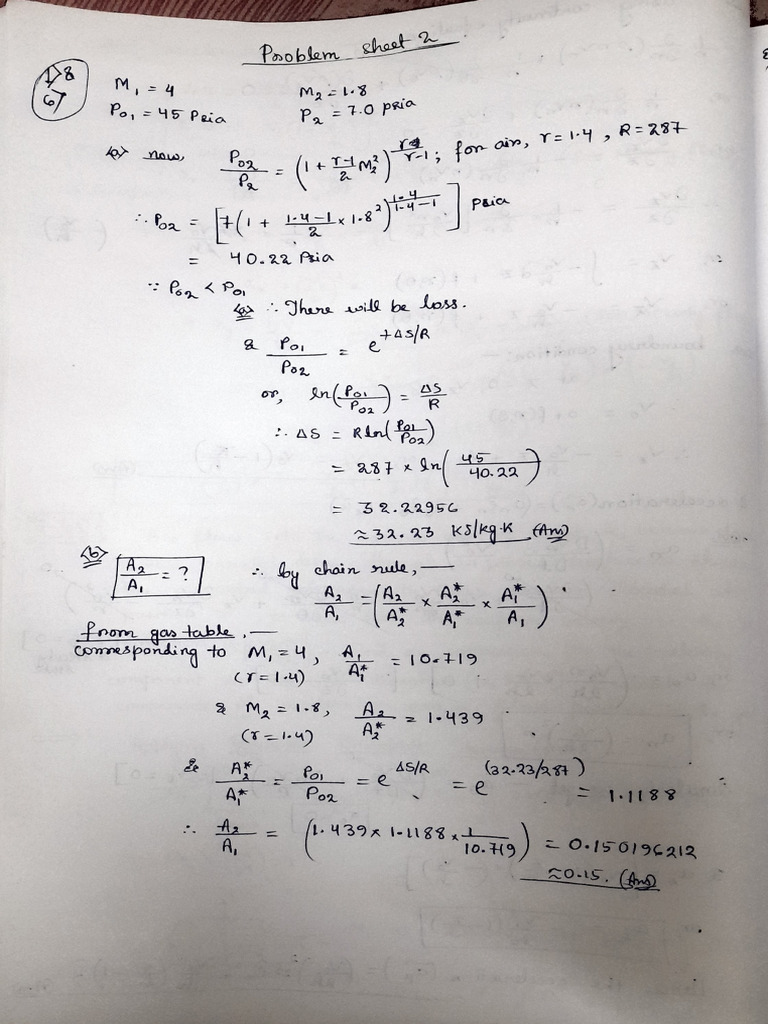 Problem sheet 2
1>8
6>
M₁ = 4 M₂ = 1.8
P₀₁ = 45 Psia P₂ = 7.0 psia
(a) now, P₀₂/P₂ = (1 + (r-1)/2 M₂²)^(r/(r-1)) ; for air, r = 1.4 , R = 287
∴ P₀₂ = [7(1 + (1.4-1)/2 × 1.8²)^(1.4/(1.4-1))] psia
= 40.22 Psia
∵ P₀₂ < P₀₁
<a> ∴ There will be loss.
& P₀₁/P₀₂ = e^(+ΔS/R)
or, ln(P₀₁/P₀₂) = ΔS/R
∴ ΔS = R ln(P₀₁/P₀₂)
= 287 × ln(45/40.22)
= 32.22956
≈ 32.23 KJ/kg.K (Ans)
<b> A₂/A₁ = ? ∴ by chain rule, —
A₂/A₁ = (A₂/A₂* × A₂*/A₁* × A₁*/A₁)
from gas table, —
corresponding to M₁ = 4, A₁/A₁* = 10.719
(r = 1.4)
& M₂ = 1.8, A₂/A₂* = 1.439
(r = 1.4)
& A₂*/A₁* = P₀₁/P₀₂ = e^(ΔS/R) = e^(32.23/287) = 1.1188
∴ A₂/A₁ = (1.439 × 1.1188 × 1/10.719) = 0.150196212
≈ 0.15. (Ans)